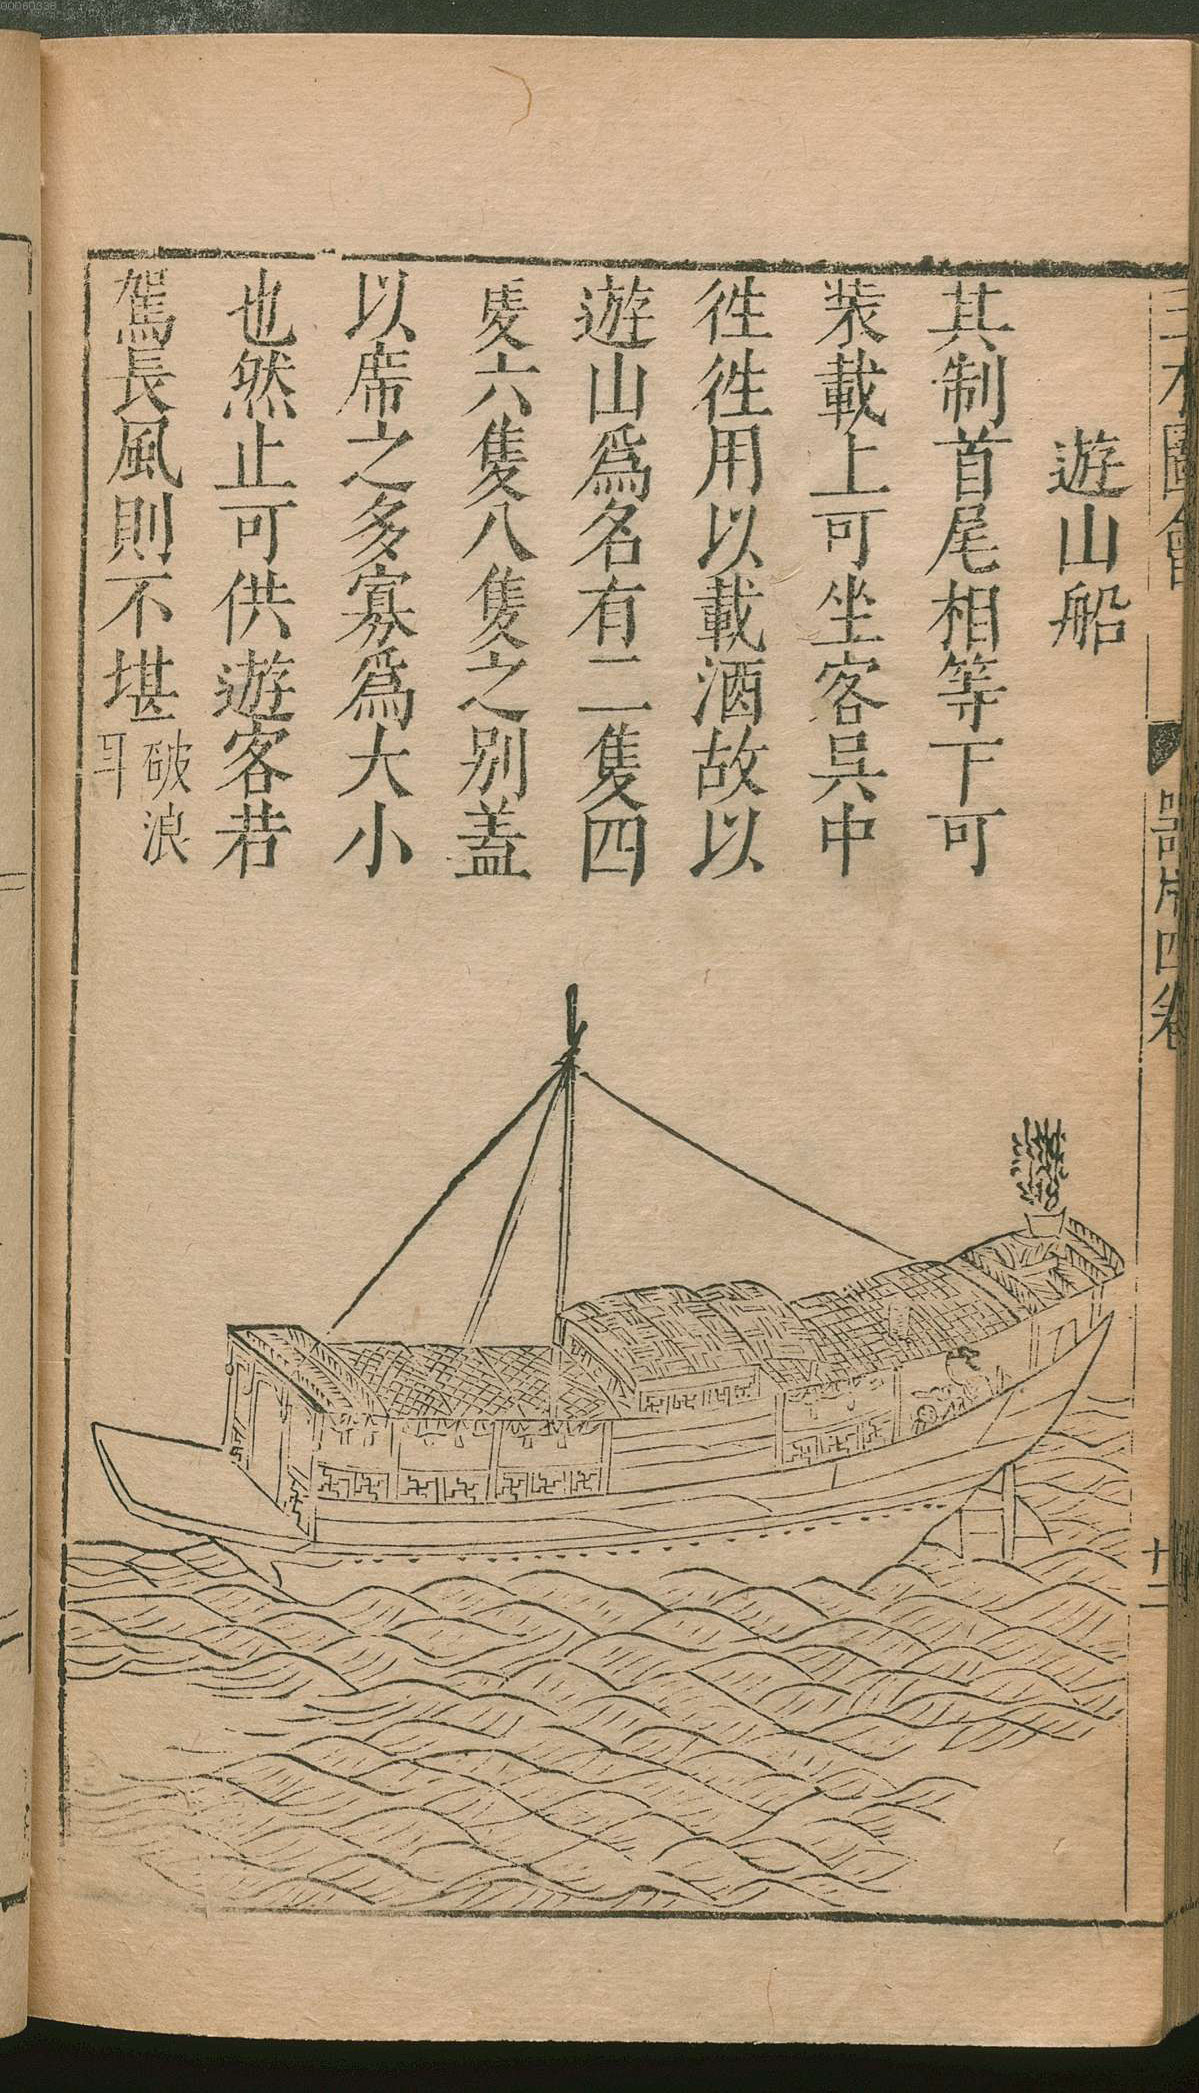 遊山船
其制首尾相等下可
装載上可坐客呉中
徃徃用以載酒故以
遊山爲名有二隻四
隻六隻八隻之别葢
以席之多寡爲大小
也然止可供遊客若
駕長風則不堪破浪
耳
三才圖會
器用四卷
十二
00060338